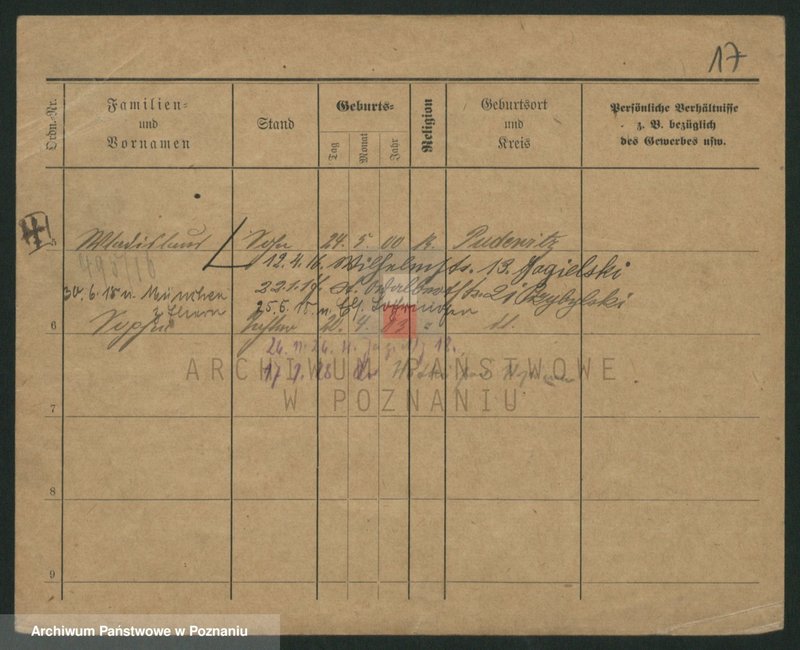 17
Ordn.-Nr.
Familien-
und
Vornamen
Stand
Geburts-
Tag
Monat
Jahr
Religion
Geburtsort
und
Kreis
Persönliche Verhältnisse
z. B. bezüglich
des Gewerbes usw.
5 Wladislaus Sohn 24. 5. 00 k. Pudewitz
495/16 12.4.16. Wilhelmstr. 13. Jagielski
22.1.17. 21 Przybylski
30.6.18 n. München
z. Eltern 25.6.18. n.
6 20. 4. 03 "
26. n. 26.
17.
ARCHIWUM PAŃSTWOWE
W POZNANIU
7
8
9
Archiwum Państwowe w Poznaniu